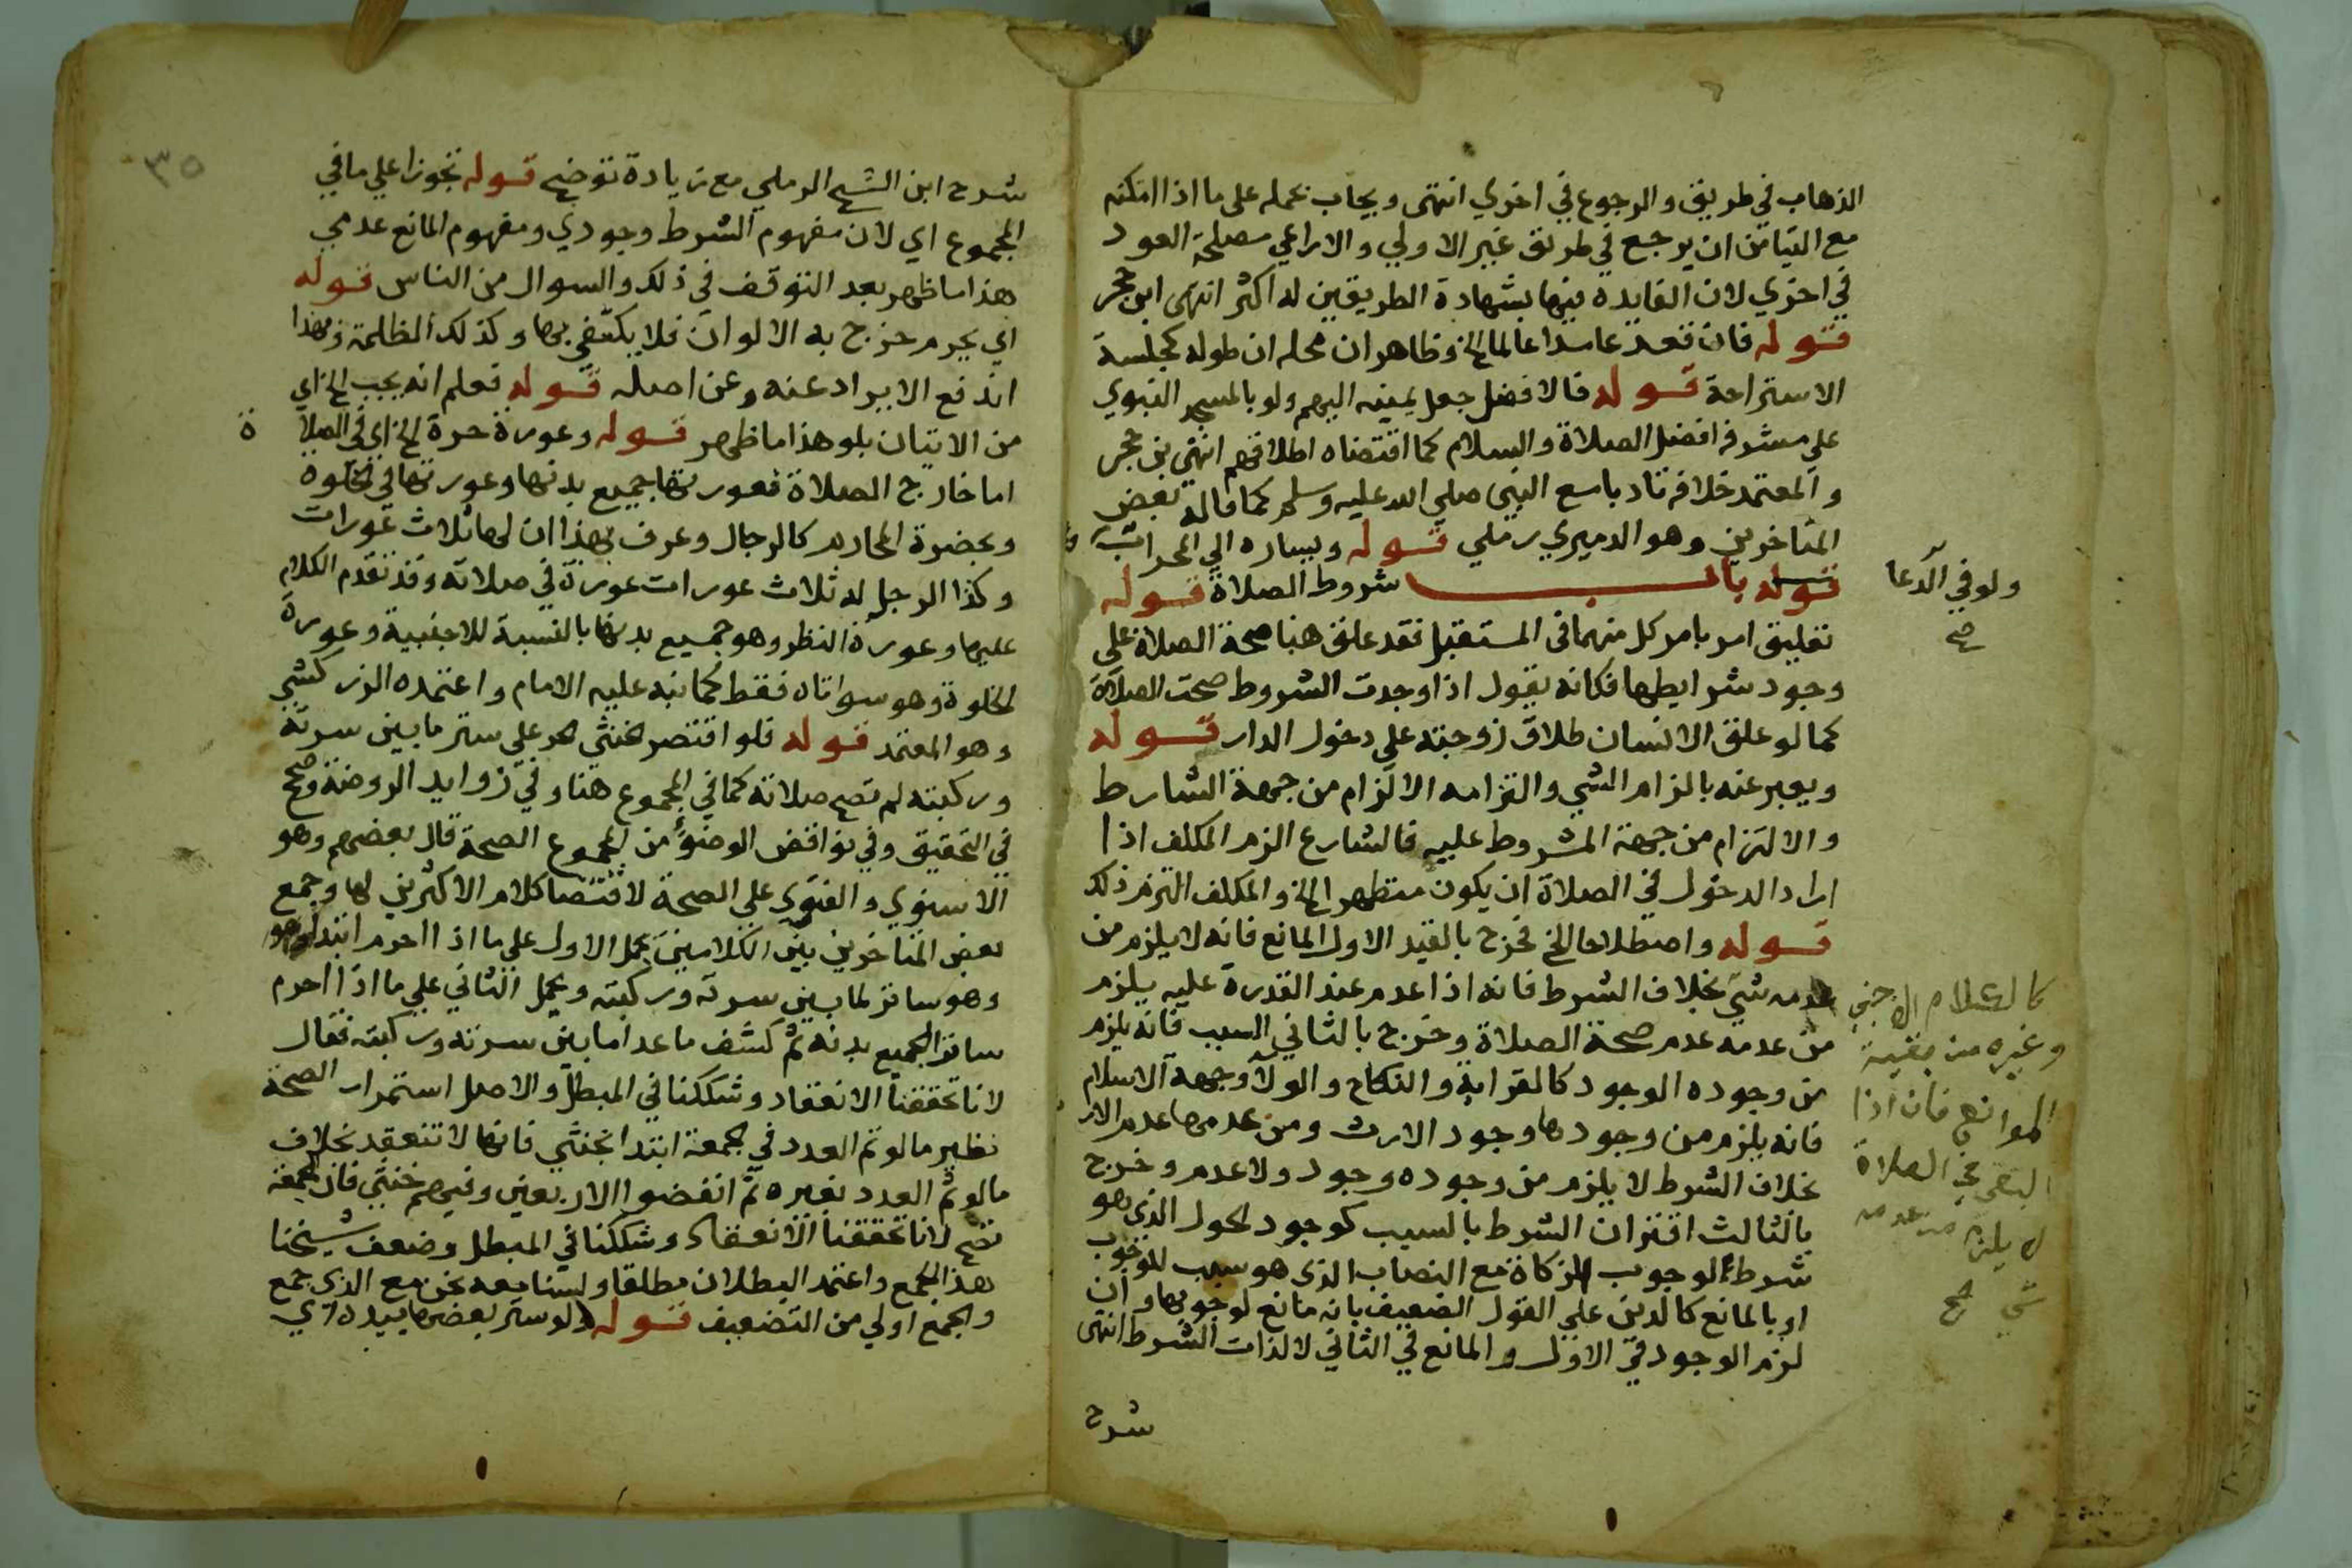 الذهاب في طريق والرجوع في اخري انتهى ويجاب بحمله على ما اذا امكنه
مع التيامن ان يرجع في طريق غير الاولي والا راعي مصلحة العود
في اخري لان الفايدة فيها بشهادة الطريقين له اكثر انتهى ابن حجر
قوله فان قعد عامدا عالما الخ وظاهر ان محله ان طوله كجلسة
الاستراحة قوله فالافضل جعل يمينه اليهم ولو بالمسجد النبوي
علي مشرفه افضل الصلاة والسلام كما اقتضاه اطلاقهم انتهى بن حجر
والمعتمد خلافه تادبا مع النبي صلي الله عليه وسلم كما قاله بعض
المتاخرين وهو الدميري رملي قوله ويساره الي المحراب
ولو في الدعا
صح
قوله باب شروط الصلاة قوله
تعليق امر بامر كل منهما في المستقبل فقد علق هنا صحة الصلاة على
وجود شرايطها فكانه يقول اذا وجدت الشروط صحت الصلاة
كما لو علق الانسان طلاق زوجته علي دخول الدار قوله
ويعبر عنه بالزام الشي والتزامه الالزام من جهة الشارط
والالتزام من جهة المشروط عليه فالشارع الزم المكلف اذا
اراد الدخول في الصلاة ان يكون متطهر الخ والمكلف التزم ذلك
قوله واصطلاحا الخ فخرج بالقيد الاول المانع فانه لا يلزم من
عدمه شي بخلاف الشرط فانه اذا عدم عند القدرة عليه يلزم
من عدمه عدم صحة الصلاة وخرج بالثاني السبب فانه يلزم
من وجوده الوجود كالقرابة والنكاح والولا وجهة الاسلام
فانه يلزم من وجودها وجود الارث ومن عدمها عدم الارث
بخلاف الشرط لا يلزم من وجوده وجود ولا عدم وخرج
بالثالث اقتران الشرط بالسبب كوجود الحول الذي هو
شرط لوجوب الزكاة مع النصاب الذي هو سبب للوجوب
او بالمانع كالدين علي القول الضعيف بانه مانع لوجوبها وان
لزم الوجود في الاول والمانع في الثاني لا لذات الشرط انتهى
كالكلام الاجنبي
وغيره من بقية
الموانع فان اذا
انتفى في الصلاة
لا يلزم من عدمه
شي صح
شرح
٣٥
شرح ابن الشيخ الرملي مع زيادة توضيح قوله تجوزا علي ما في
المجموع اي لان مفهوم الشرط وجودي ومفهوم المانع عدمي
هذا ما ظهر بعد التوقف في ذلك والسوال من الناس قوله
اي بجرم خرج به الالوان فلا يكتفي بها وكذلك الظلمة وبهذا
اندفع الايراد عنه وعن اصله قوله فعلم انه يجب الخ اي
من الاتيان بلو هذا ما ظهر قوله وعورة حرة الخ اي في الصلاة
اما خارج الصلاة فعورتها جميع بدنها وعورتها في الخلوه
وبحضرة المحارم كالرجال وعرف بهذا ان لها ثلاث عورات
وكذا الرجل له ثلاث عورات عورة في صلاته وقد تقدم الكلام
عليها وعورة النظر وهو جميع بدنها بالنسبة للاجنبية وعورة
الخلوة وهو سواتاه فقط كما نبه عليه الامام واعتمده الزركشي
وهو المعتمد قوله فلو اقتصر خنثي حر علي ستر ما بين سرته
وركبته لم تصح صلاته كما في المجموع هنا وفي زوايد الروضة وصحح
في التحقيق وفي نواقض الوضوء من المجموع الصحة قال بعضهم وهو
الاسنوي والفتوي علي الصحة لاقتضا كلام الاكثرين لها وجمع
بعض المتاخرين بين الكلامين بحمل الاول علي ما اذا احرم ابتدا وهو
وهو ساتر لما بين سرته وركبته وبحمل الثاني علي ما اذا احرم
ساترا لجميع بدنه ثم كشف ما عدا ما بين سرته وركبته فقال
لانا تحققنا الانعقاد وشككنا في المبطل والاصل استمرار الصحة
نظير ما لو تم العدد في جمعة ابتدا بخنثي فانها لا تنعقد بخلاف
ما لو تم العدد بغيره ثم انفضوا الاربعين وفيهم خنثي فان الجمعة
تصح لانا تحققنا الانعقاد وشككنا في المبطل وضعف شيخنا
هذا الجمع واعتمد البطلان مطلقا ولسنا معه نحن مع الذي جمع
والجمع اولي من التضعيف قوله ولو ستر بعضها بيده اي